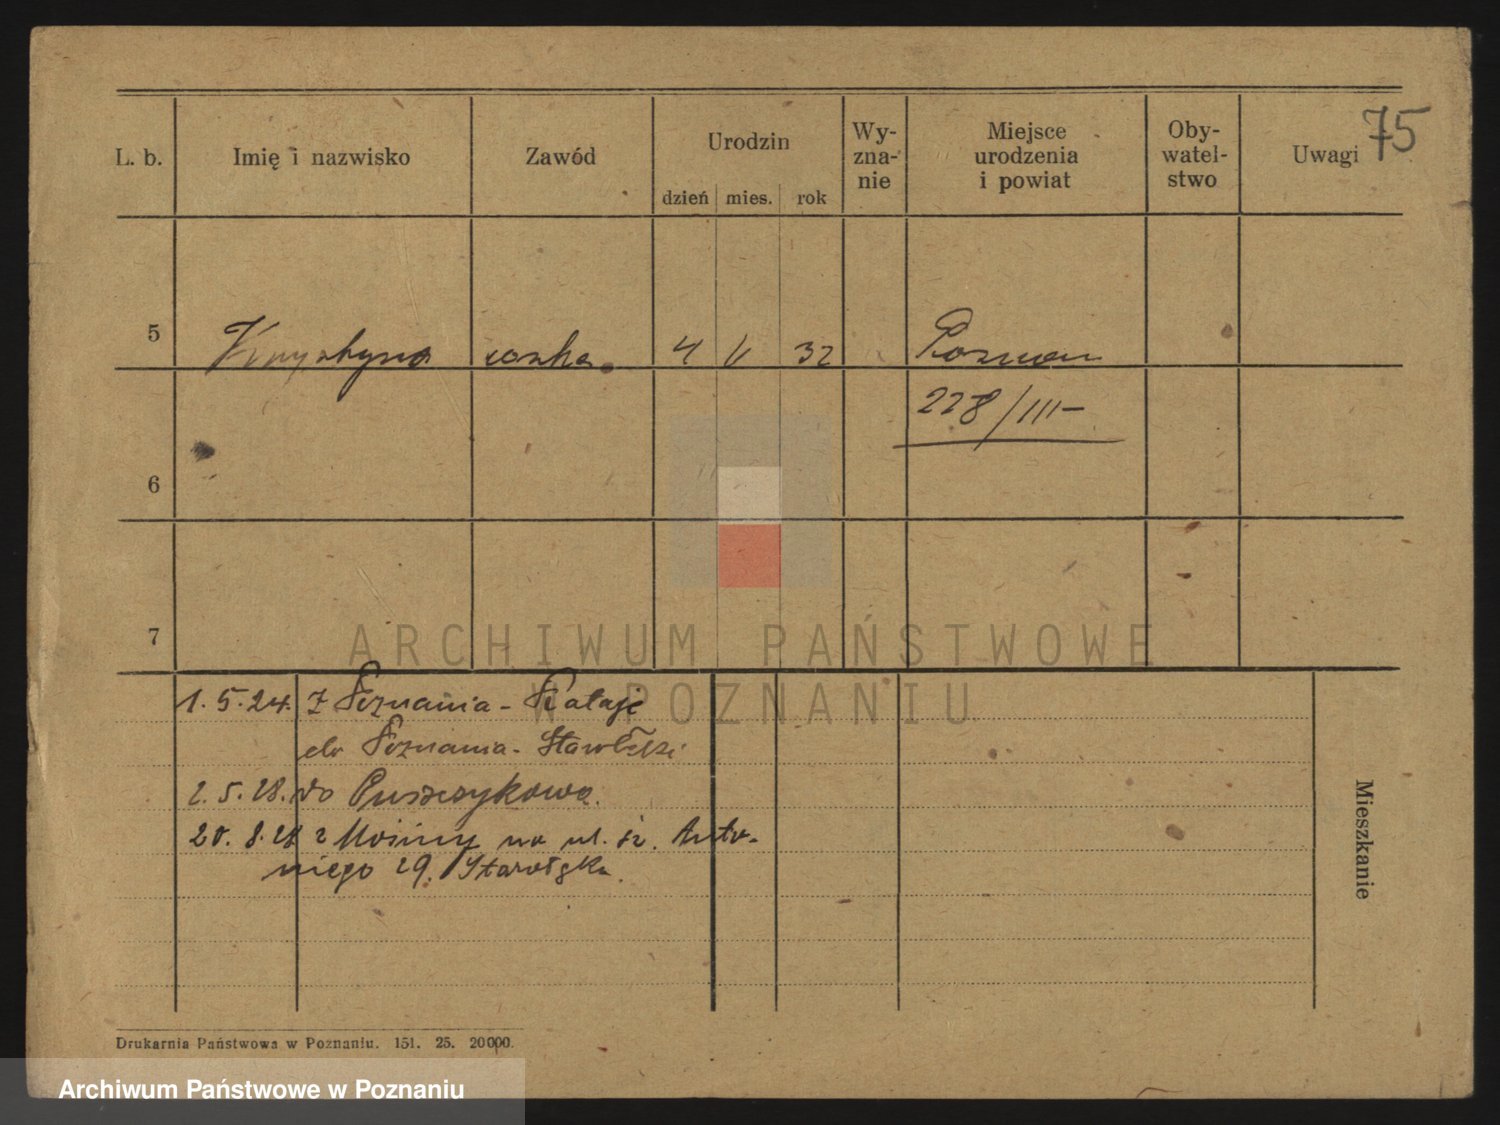 75
L. b. Imię i nazwisko Zawód Urodzin Wy-zna-nie Miejsce urodzenia i powiat Oby-watel-stwo Uwagi
dzień mies. rok
5 Krystyna córka. 4 V 32 Poznań
228/III-
6
7
ARCHIWUM PAŃSTWOWE
W POZNANIU
1.5.24. Z Poznania - Rataje
do Poznania -
2.5.28. do Puszczykowa.
20.8.28 z Mosiny na ul. św. Anto-
niego 29. Starołęka.
Mieszkanie
Drukarnia Państwowa w Poznaniu. 151. 25. 20000.
Archiwum Państwowe w Poznaniu